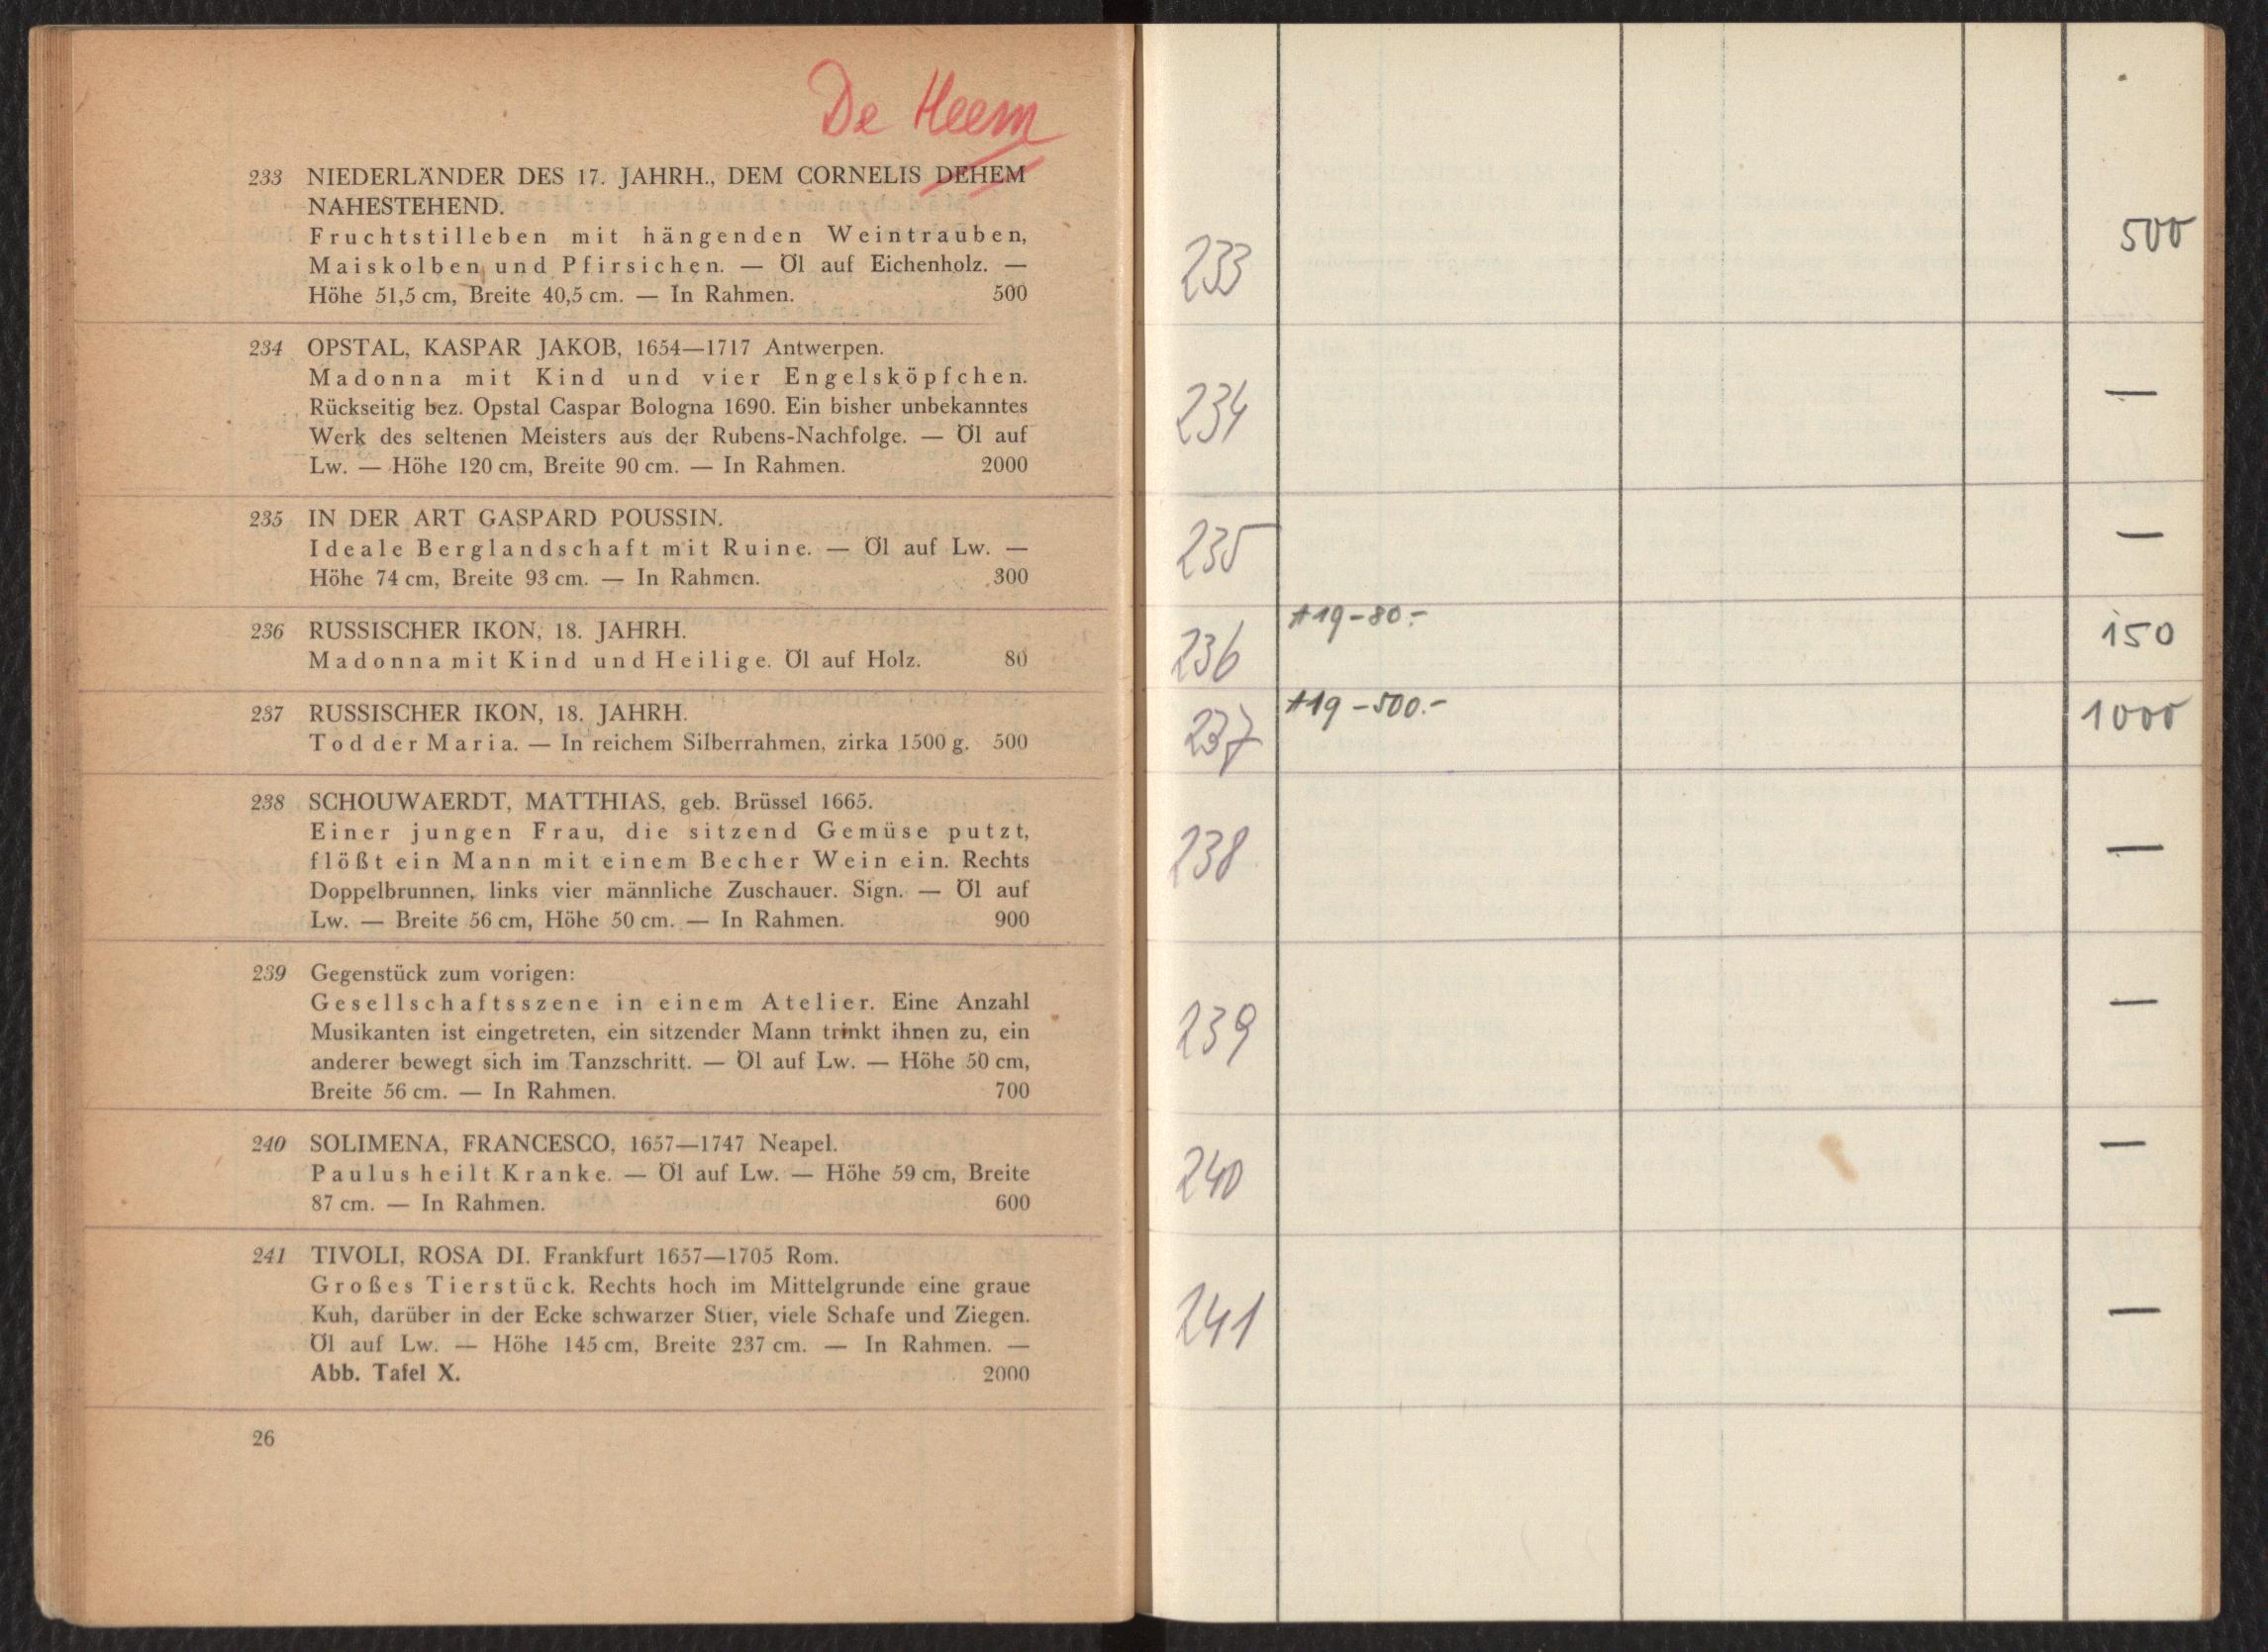 De Heem
233 NIEDERLÄNDER DES 17. JAHRH., DEM CORNELIS DEHEM
NAHESTEHEND.
Fruchtstilleben mit hängenden Weintrauben,
Maiskolben und Pfirsichen. — Öl auf Eichenholz. —
Höhe 51,5 cm, Breite 40,5 cm. — In Rahmen. 500
234 OPSTAL, KASPAR JAKOB, 1654—1717 Antwerpen.
Madonna mit Kind und vier Engelsköpfchen.
Rückseitig bez. Opstal Caspar Bologna 1690. Ein bisher unbekanntes
Werk des seltenen Meisters aus der Rubens-Nachfolge. — Öl auf
Lw. — Höhe 120 cm, Breite 90 cm. — In Rahmen. 2000
235 IN DER ART GASPARD POUSSIN.
Ideale Berglandschaft mit Ruine. — Öl auf Lw. —
Höhe 74 cm, Breite 93 cm. — In Rahmen. 300
236 RUSSISCHER IKON, 18. JAHRH.
Madonna mit Kind und Heilige. Öl auf Holz. 80
237 RUSSISCHER IKON, 18. JAHRH.
Tod der Maria. — In reichem Silberrahmen, zirka 1500 g. 500
238 SCHOUWAERDT, MATTHIAS, geb. Brüssel 1665.
Einer jungen Frau, die sitzend Gemüse putzt,
flößt ein Mann mit einem Becher Wein ein. Rechts
Doppelbrunnen, links vier männliche Zuschauer. Sign. — Öl auf
Lw. — Breite 56 cm, Höhe 50 cm. — In Rahmen. 900
239 Gegenstück zum vorigen:
Gesellschaftsszene in einem Atelier. Eine Anzahl
Musikanten ist eingetreten, ein sitzender Mann trinkt ihnen zu, ein
anderer bewegt sich im Tanzschritt. — Öl auf Lw. — Höhe 50 cm,
Breite 56 cm. — In Rahmen. 700
240 SOLIMENA, FRANCESCO, 1657—1747 Neapel.
Paulus heilt Kranke. — Öl auf Lw. — Höhe 59 cm, Breite
87 cm. — In Rahmen. 600
241 TIVOLI, ROSA DI. Frankfurt 1657—1705 Rom.
Großes Tierstück. Rechts hoch im Mittelgrunde eine graue
Kuh, darüber in der Ecke schwarzer Stier, viele Schafe und Ziegen.
Öl auf Lw. — Höhe 145 cm, Breite 237 cm. — In Rahmen. —
Abb. Tafel X. 2000
26
233 500
234 —
235 —
236 19-80.- 150
237 19-500.- 1000
238 —
239 —
240 —
241 —